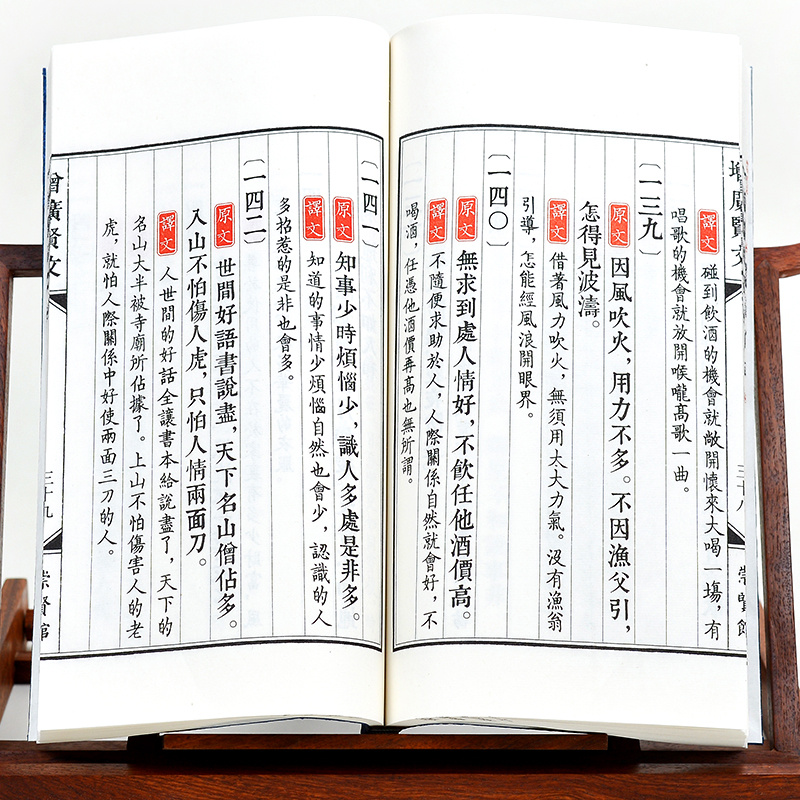 增廣賢文
三十八
崇賢館
譯文 碰到飲酒的機會就敞開懷來大喝一場，有
唱歌的機會就放開喉嚨高歌一曲。
〔一三九〕
原文 因風吹火，用力不多。不因漁父引，
怎得見波濤。
譯文 借著風力吹火，無須用太大力氣。沒有漁翁
引導，怎能經風浪開眼界。
〔一四〇〕
原文 無求到處人情好，不飲任他酒價高。
譯文 不隨便求助於人，人際關係自然就會好，不
喝酒，任憑他酒價再高也無所謂。
〔一四一〕
原文 知事少時煩惱少，識人多處是非多。
譯文 知道的事情少煩惱自然也會少，認識的人
多招惹的是非也會多。
〔一四二〕
原文 世間好語書說盡，天下名山僧佔多。
入山不怕傷人虎，只怕人情兩面刀。
譯文 人世間的好話全讓書本給說盡了，天下的
名山大半被寺廟所佔據了。上山不怕傷害人的老
虎，就怕人際關係中好使兩面三刀的人。
增廣賢文
三十九
崇賢館